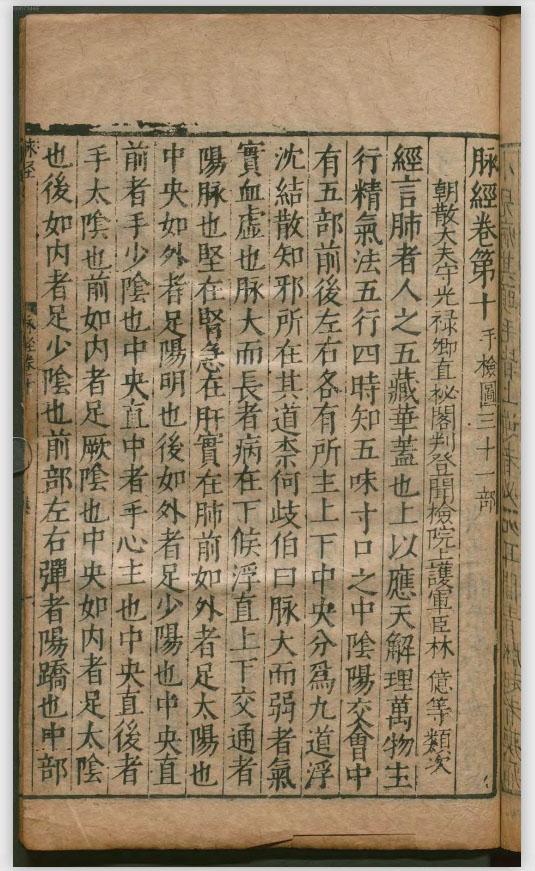 脉經卷第十 手檢圖三十一部
朝散大夫守光禄卿直秘閣判登聞檢院上護軍臣林 億等類次
經言肺者人之五藏華蓋也上以應天解理萬物主
行精氣法五行四時知五味寸口之中陰陽交會中
有五部前後左右各有所主上下中央分爲九道浮
沈結散知邪所在其道柰何歧伯曰脉大而弱者氣
實血虛也脉大而長者病在下候浮直上下交通者
陽脉也堅在腎急在肝實在肺前如外者足太陽也
中央如外者足陽明也後如外者足少陽也中央直
前者手少陰也中央直中者手心主也中央直後者
手太陰也前如内者足厥陰也中央如内者足太陰
也後如内者足少陰也前部左右彈者陽蹻也中部
脉經
脉經卷十